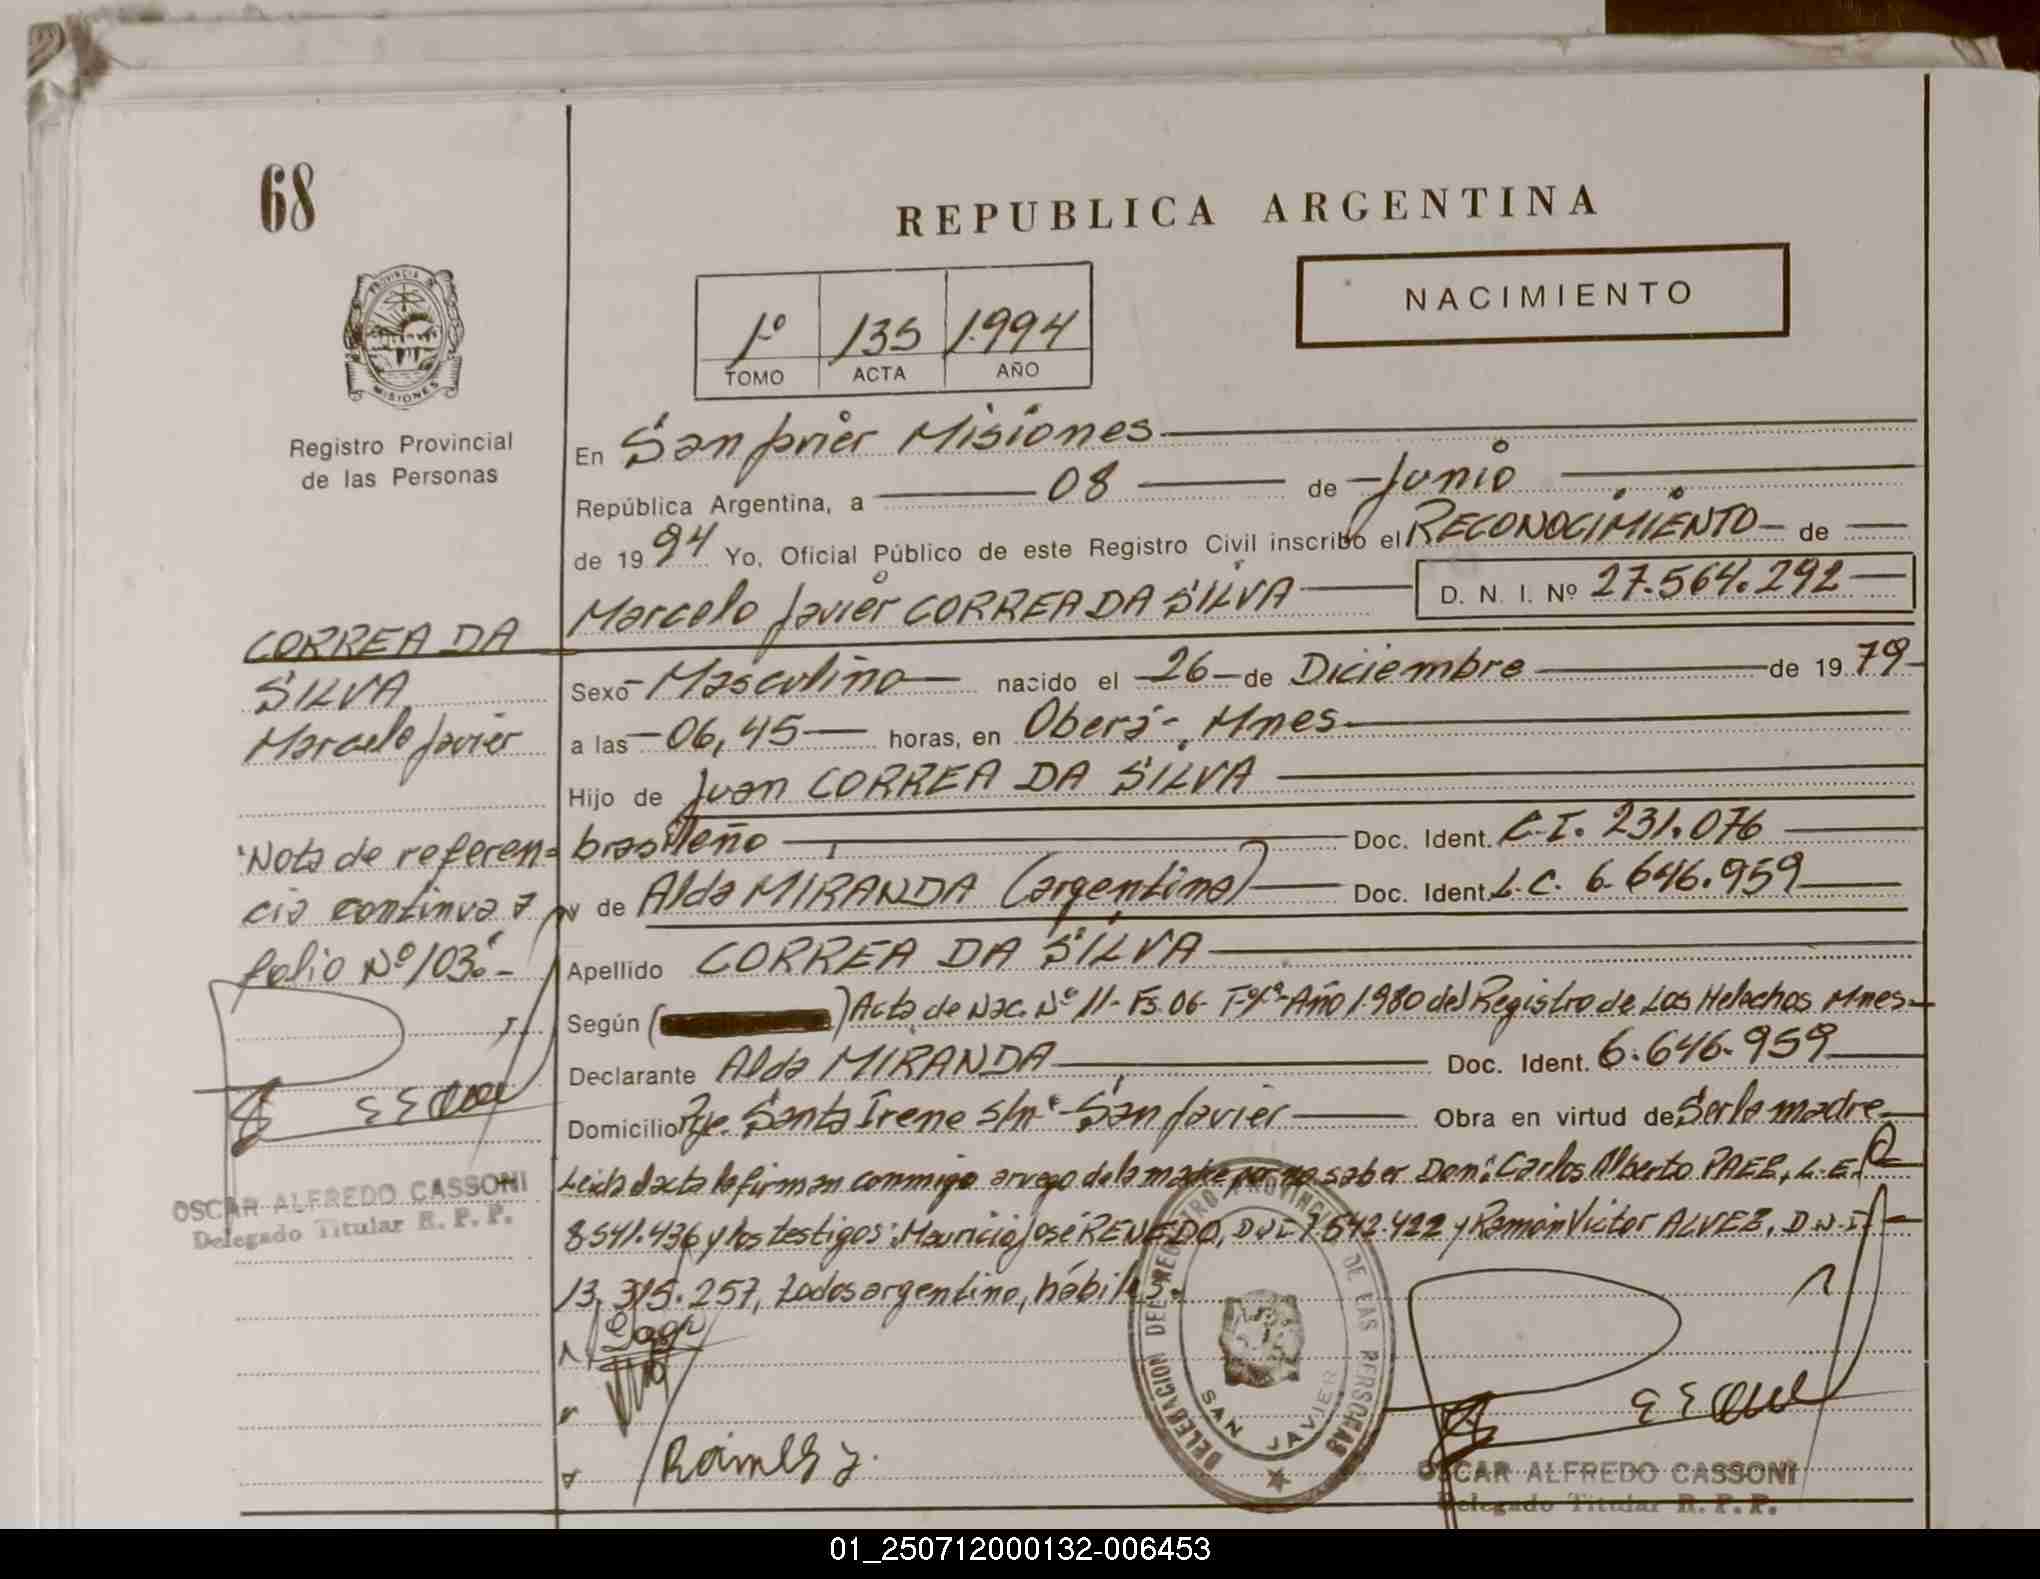 68
REPUBLICA ARGENTINA
NACIMIENTO
1º 135 1.994
TOMO ACTA AÑO
PROVINCIA DE MISIONES
Registro Provincial
de las Personas
En San Javier Misiones
República Argentina, a 08 de Junio
de 19 94 Yo, Oficial Público de este Registro Civil inscribo el RECONOCIMIENTO de
Marcelo Javier CORREA DA SILVA D. N. I. Nº 27.564.292
CORREA DA
SILVA
Marcelo Javier
Sexo Masculino nacido el 26 de Diciembre de 19 79
a las 06,45 horas, en Oberá - Mnes
Hijo de Juan CORREA DA SILVA
brasileño Doc. Ident. C.I. 231.076
y de Alda MIRANDA (argentina) Doc. Ident. L.C. 6.646.959
Apellido CORREA DA SILVA
Según ( ) Acta de Nac. Nº 11- Fs. 06- Tº 1º- Año 1.980 del Registro de Los Helechos Mnes-
Declarante Alda MIRANDA Doc. Ident. 6.646.959
Domicilio Pje. Santa Irene s/nº - San Javier Obra en virtud de Ser la madre
Leída el acta la firman conmigo a ruego de la madre por no saber Don: Carlos Alberto PAEZ, L.E.
8541.436 y los testigos: Mauricio José RENEDO, DNI 7.542.422 y Ramón Victor ALVEZ, D.N.I.
13.315.257, todos argentino, hábiles.
Nota de referen=
cia continua a
folio Nº 103.-
OSCAR ALFREDO CASSONI
Delegado Titular R. P. P.
DELEGACION DEL REGISTRO PROVINCIAL DE LAS PERSONAS
SAN JAVIER
OSCAR ALFREDO CASSONI
Delegado Titular R. P. P.
01_250712000132-006453